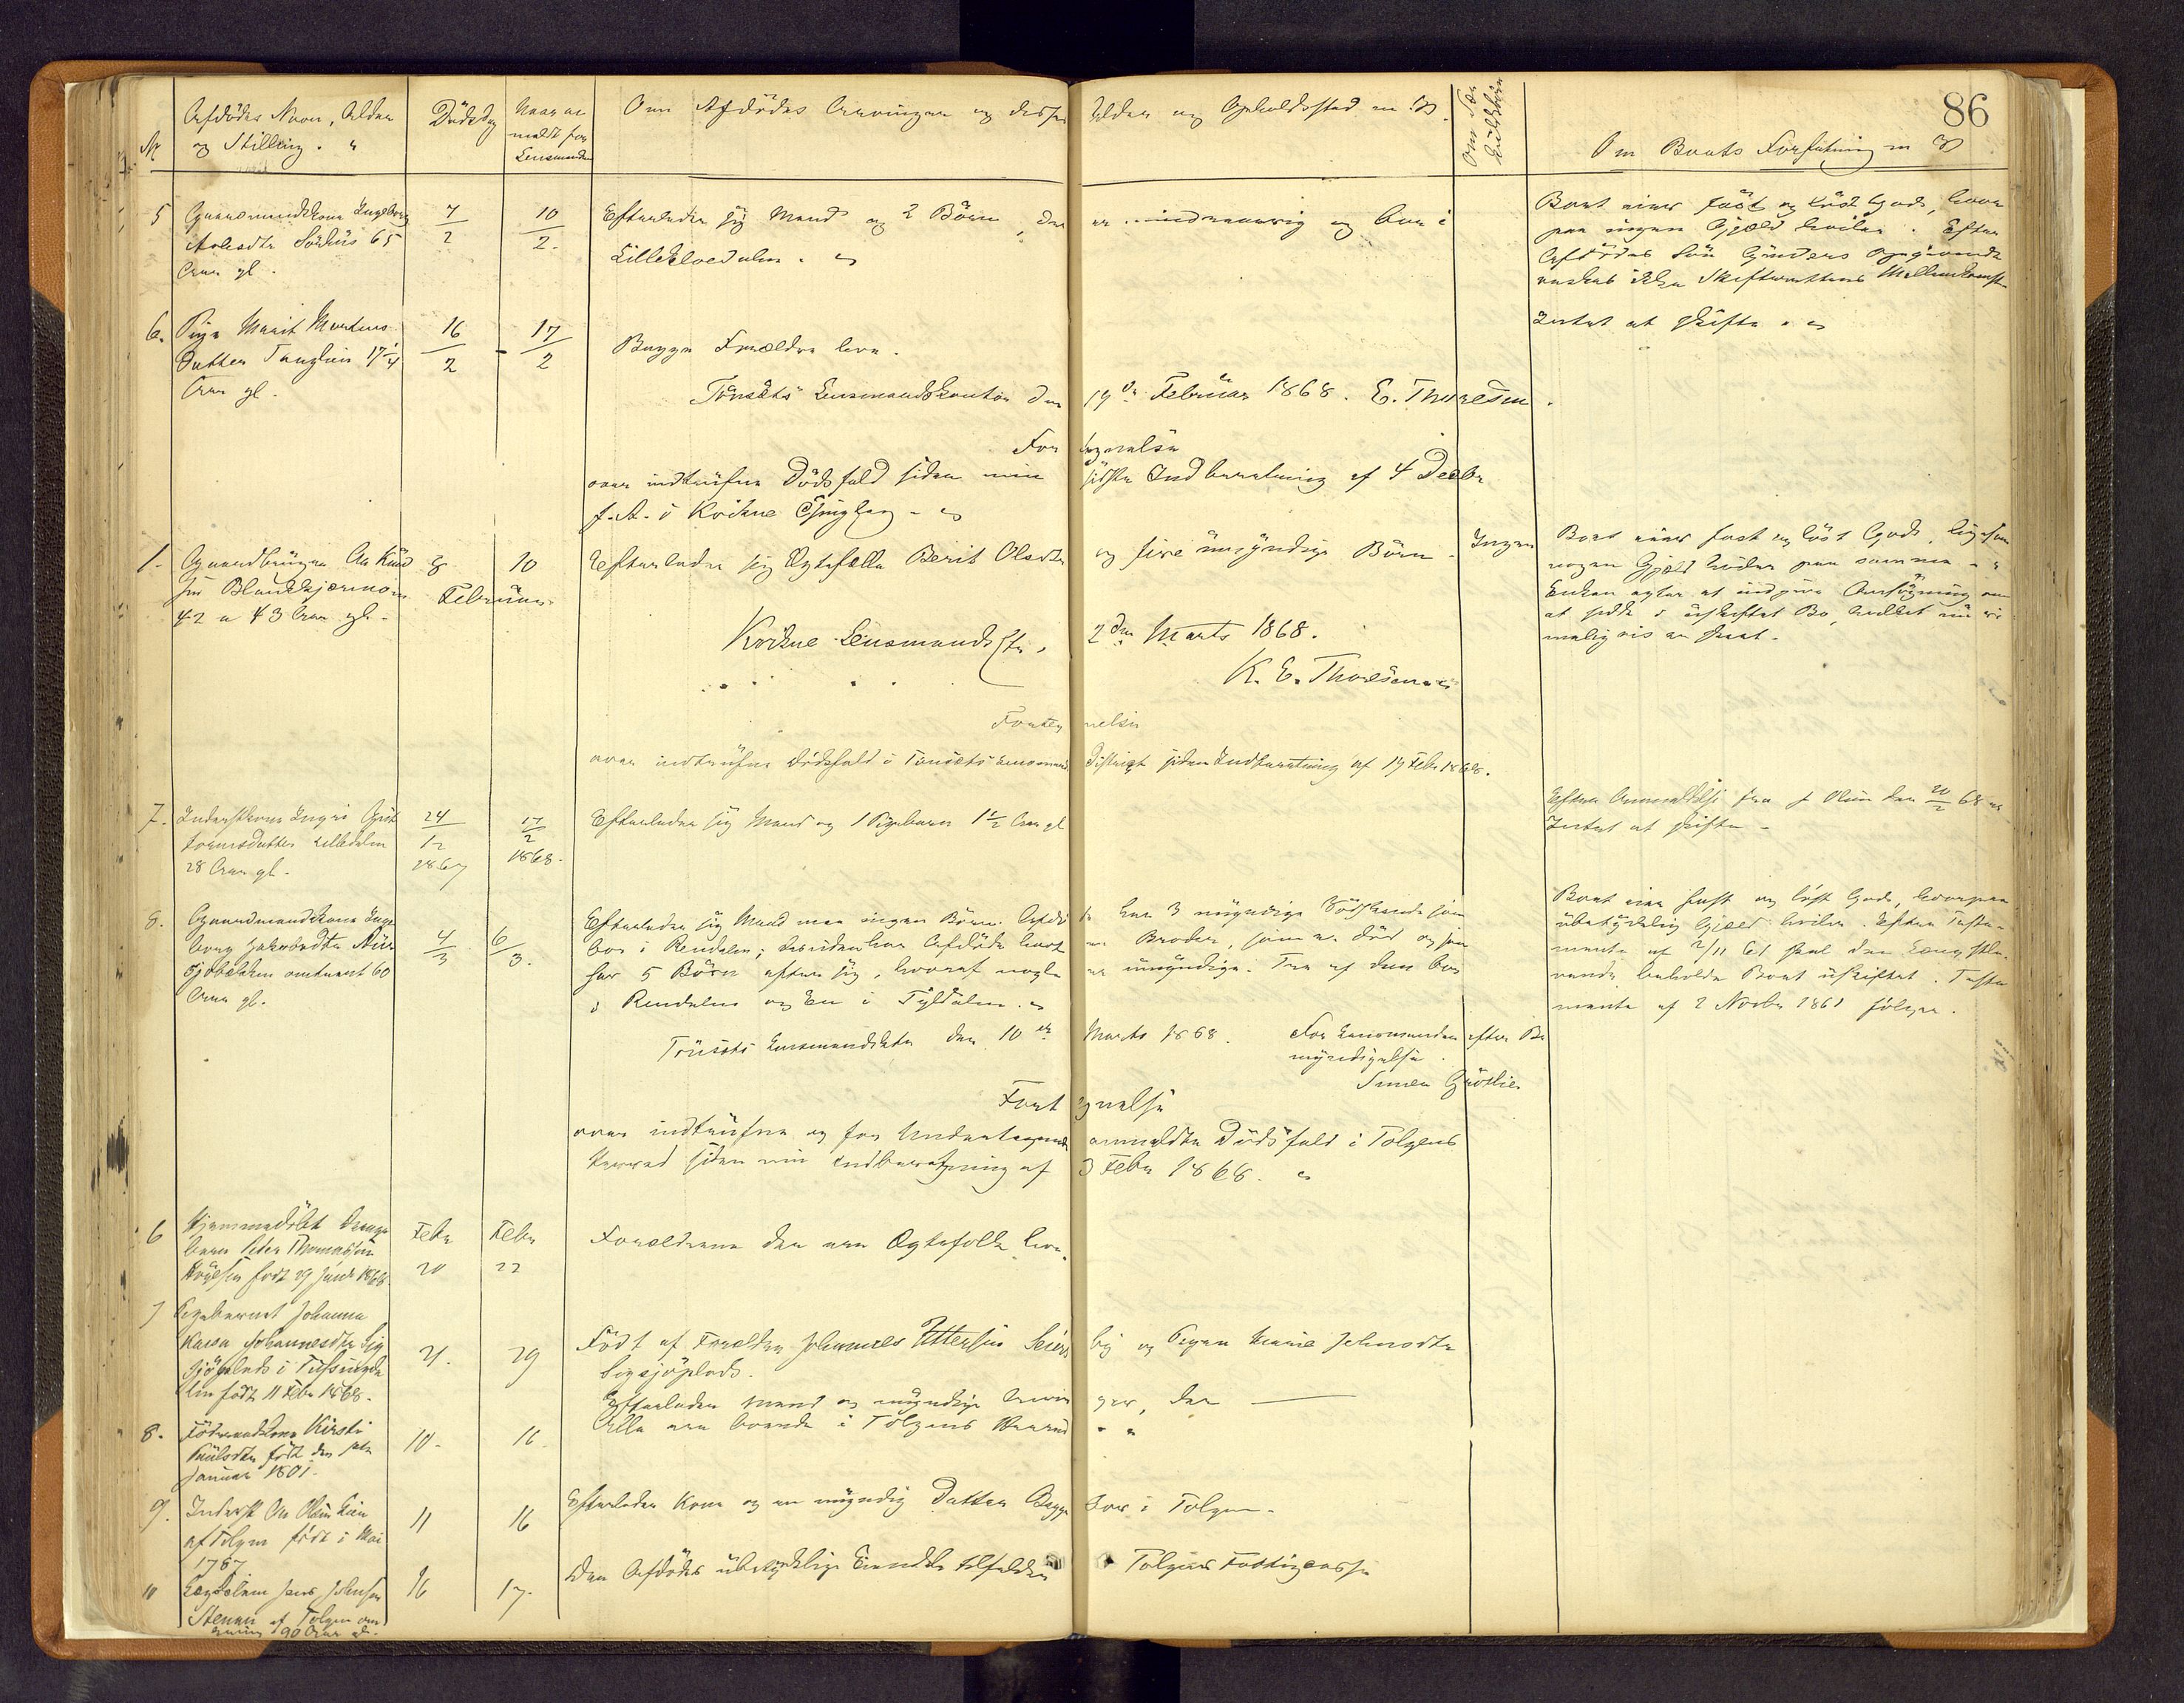 86
Nr
Afdødes Navn, Alder
og Stilling.
Dødsdag
Naar an-
meldt for
Lensmanden
Om Afdødes Arvinger og disses Alder og Opholdssted m. V.
Om Sær
kuldbörn
Om Boets Forfatning m V
5 Gaardmandskone Ingeborg
65
Aar gl.
7/2
10/2.
Efterlader sig Mand og 2 Börn, der er mindreaarig og boer i
Lilleelvedalen.
Boet eier fast og löst Gods, hvor
paa ingen Gjæld hviler. Efter
Afdødes Sön Opgivende
önskes ikke Skifterettens Mellemkomst
6. Pige Marit Mortens
datter 17 1/4
Aar gl.
16/2
17/2
Begge Forældre leve.
Intet at skifte.
Tönsets Lensmandskontor den 19de Februar 1868. E. Thoresen.
Fortegnelse
over indtrufne Dödsfald siden min sidste Indberetning af 4 Decbr
f. A. i Kvikne Thinglag.
1. Gaardbruger Ole Knud
sen
42 a 43 Aar gl.
8
10
Februar
Efterlader sig Ægtefælle Berit Olsdtr og fire umyndige Börn.
Ingen
Boet eier fast og löst Gods, ligesom
nogen Gjæld hviler paa samme.
Enken agter at indgive Ansögning om
at sidde i uskiftet Bo, hvilket nu ri
meligvis er skeet.
Kvikne Lensmandsktr. 2den Marts 1868.
K. E. Thoresen
Fortegnelse
over indtrufne Dödsfald i Tönsets Lensmands Distrigt siden Indberetning af 19 Febr 1868.
7. Inderstkone Ingri
Lilledalen
28 Aar gl.
24/12
1867
17/2
1868.
Efterlader sig Mand og 1 Pigebarn 1 1/2 Aar gl
Efter Anmeldelse fra den 20/2 68 er
Intet at skifte.
8. Gaardmandskone Inge
borg Jakobsdtr
omtrent 60
Aar gl.
4/3
6/3.
Efterlader sig Mand men ingen Börn. Afdöde har 3 myndige Södskende som
bor i Rendalen; desuden har Afdöde havt en Broder, som er död og som
har 5 Börn efter sig, hvoraf nogle er umyndige. Tre af dem bor
i Rendalen og En i Tyldalen.
Boet eier fast og löst Gods, hvorpaa
ubetydelig Gjæld hviler. Efter Testa-
mente af 2/11 61 skal den Længstle-
vende beholde Boet uskiftet. Testa
mente af 2 Novbr 1861 fölger.
Tönsets Lensmandsktr den 10de Marts 1868. For Lensmanden efter Be
myndigelse.
Simen
Fortegnelse
over indtrufne og for Undertegnede anmeldte Dödsfald i Tolgens
Herred siden min Indberetning af 3 Febr 1868.
6 Hjemmedöbt Drenge
barn Peter Thomassen
födt 29 Juni 1866
Febr
20
Febr
22
Forældrene der ere Ægtefolk leve.
7 Pigebarnet Johanna
Karen Johannesdtr
födt 11 Febr 1868.
21.
29
Födt af Forældre Johannes Ottersen og Pigen Marie Johnsdtr
Sigsjöplads.
8. Födraadskone Kirsti
födt den
Januar 1801.
10.
16.
Efterlader Mand og myndige Arvinger, der
Alle ere boende i Tolgens Herred
9. Inderst Ole Olsen Lien
af Tolgen födt i Mai
1767
11
16
Efterlader Kone og en myndig Datter Begge boer i Tolgen.
10 Lægdslem Jens Johnsen
af Tolgen om
kring 90 Aar gl.
16
17.
Den Afdödes ubetydelige Eiendele tilfalder Tolgens Fattigcasse